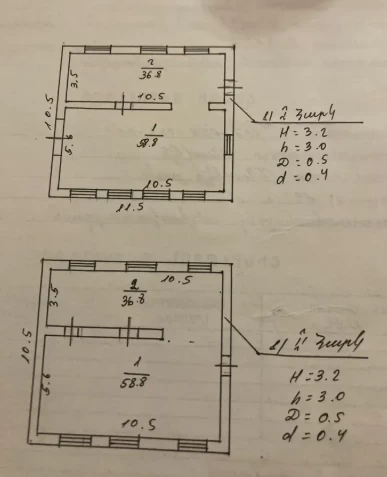 2
36.8
3.5
10.5
10.5
1
58.8
5.6
10.5
11.5
հարկ
H=3.2
h=3.0
D=0.5
d=0.4
10.5
2
36.8
3.5
10.5
1
58.8
5.6
10.5
հարկ
H=3.2
h=3.0
D=0.5
d=0.4